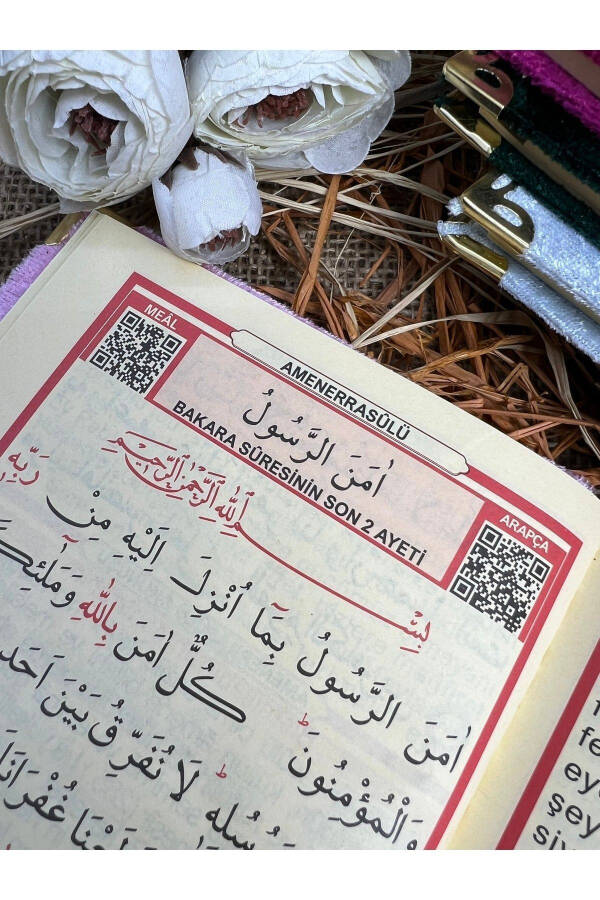 MEÂL
AMENERRASÛLÜ
اٰمَنَ الرَّسُولُ
BAKARA SÛRESİNİN SON 2 AYETİ
ARAPÇA
بِسْمِ اللّٰهِ الرَّحْمٰنِ الرَّحِيمِ
اٰمَنَ الرَّسُولُ بِمَٓا اُنْزِلَ اِلَيْهِ مِنْ رَبِّهٖ
وَالْمُؤْمِنُونَۜ كُلٌّ اٰمَنَ بِاللّٰهِ وَمَلٰٓئِكَ
لَا نُفَرِّقُ بَيْنَ اَحَدٍ
غُفْرَانَ
fe
eye
şey
siy